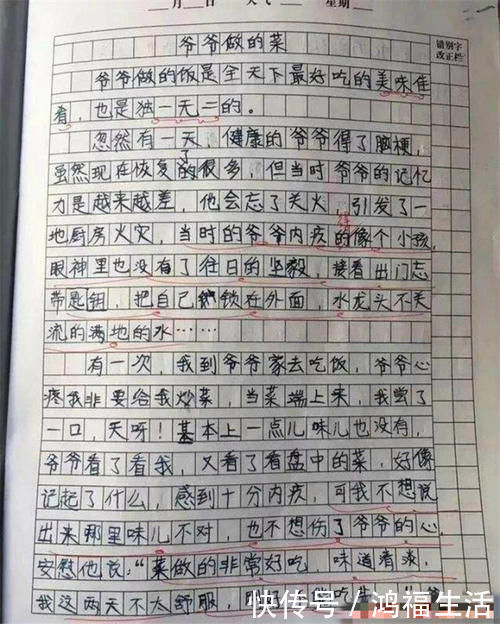 月 日 天气 星期
错别字
改正栏
爷爷做的菜
爷爷做的饭是全天下最好吃的美味佳
肴，也是独一无二的。
忽然有一天，健康的爷爷得了脑梗，
虽然现在恢复了的很多，但当时爷爷的记忆
力是越来越差，他会忘了关火，引发了一
地厨房火灾，当时的爷爷内疚的像个小孩，
眼神里也没有了往日的坚毅，接着出门忘
带匙钥，把自己锁在外面，水龙头不关
流的满地的水……
有一次，我到爷爷家去吃饭，爷爷心
疼我非要给我炒菜，当菜端上来，我尝了
一口，天呀！基本上一点儿味儿也没有，
爷爷看了看我，又看了看盘中的菜，好像
记起了什么，感到十分内疚，可我不想说
出来那里味儿不对，也不想伤了爷爷的心，
安慰他说：“菜做的非常好吃，味道着淡，
我这两天不太舒服，
快传号／鸿福生活